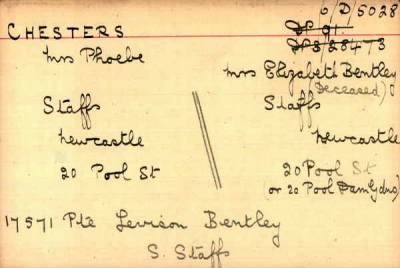 6/D/5028
CHESTERS
DP 91.
DP3/28473
Mrs Phoebe
Mrs Elizabeth Bentley
(Deceased)
Staffs
Staffs
Newcastle
Newcastle
20 Pool St
20 Pool St
(or 20 Pool Dam Gdns)
17571 Pte Levison Bentley
S. Staffs